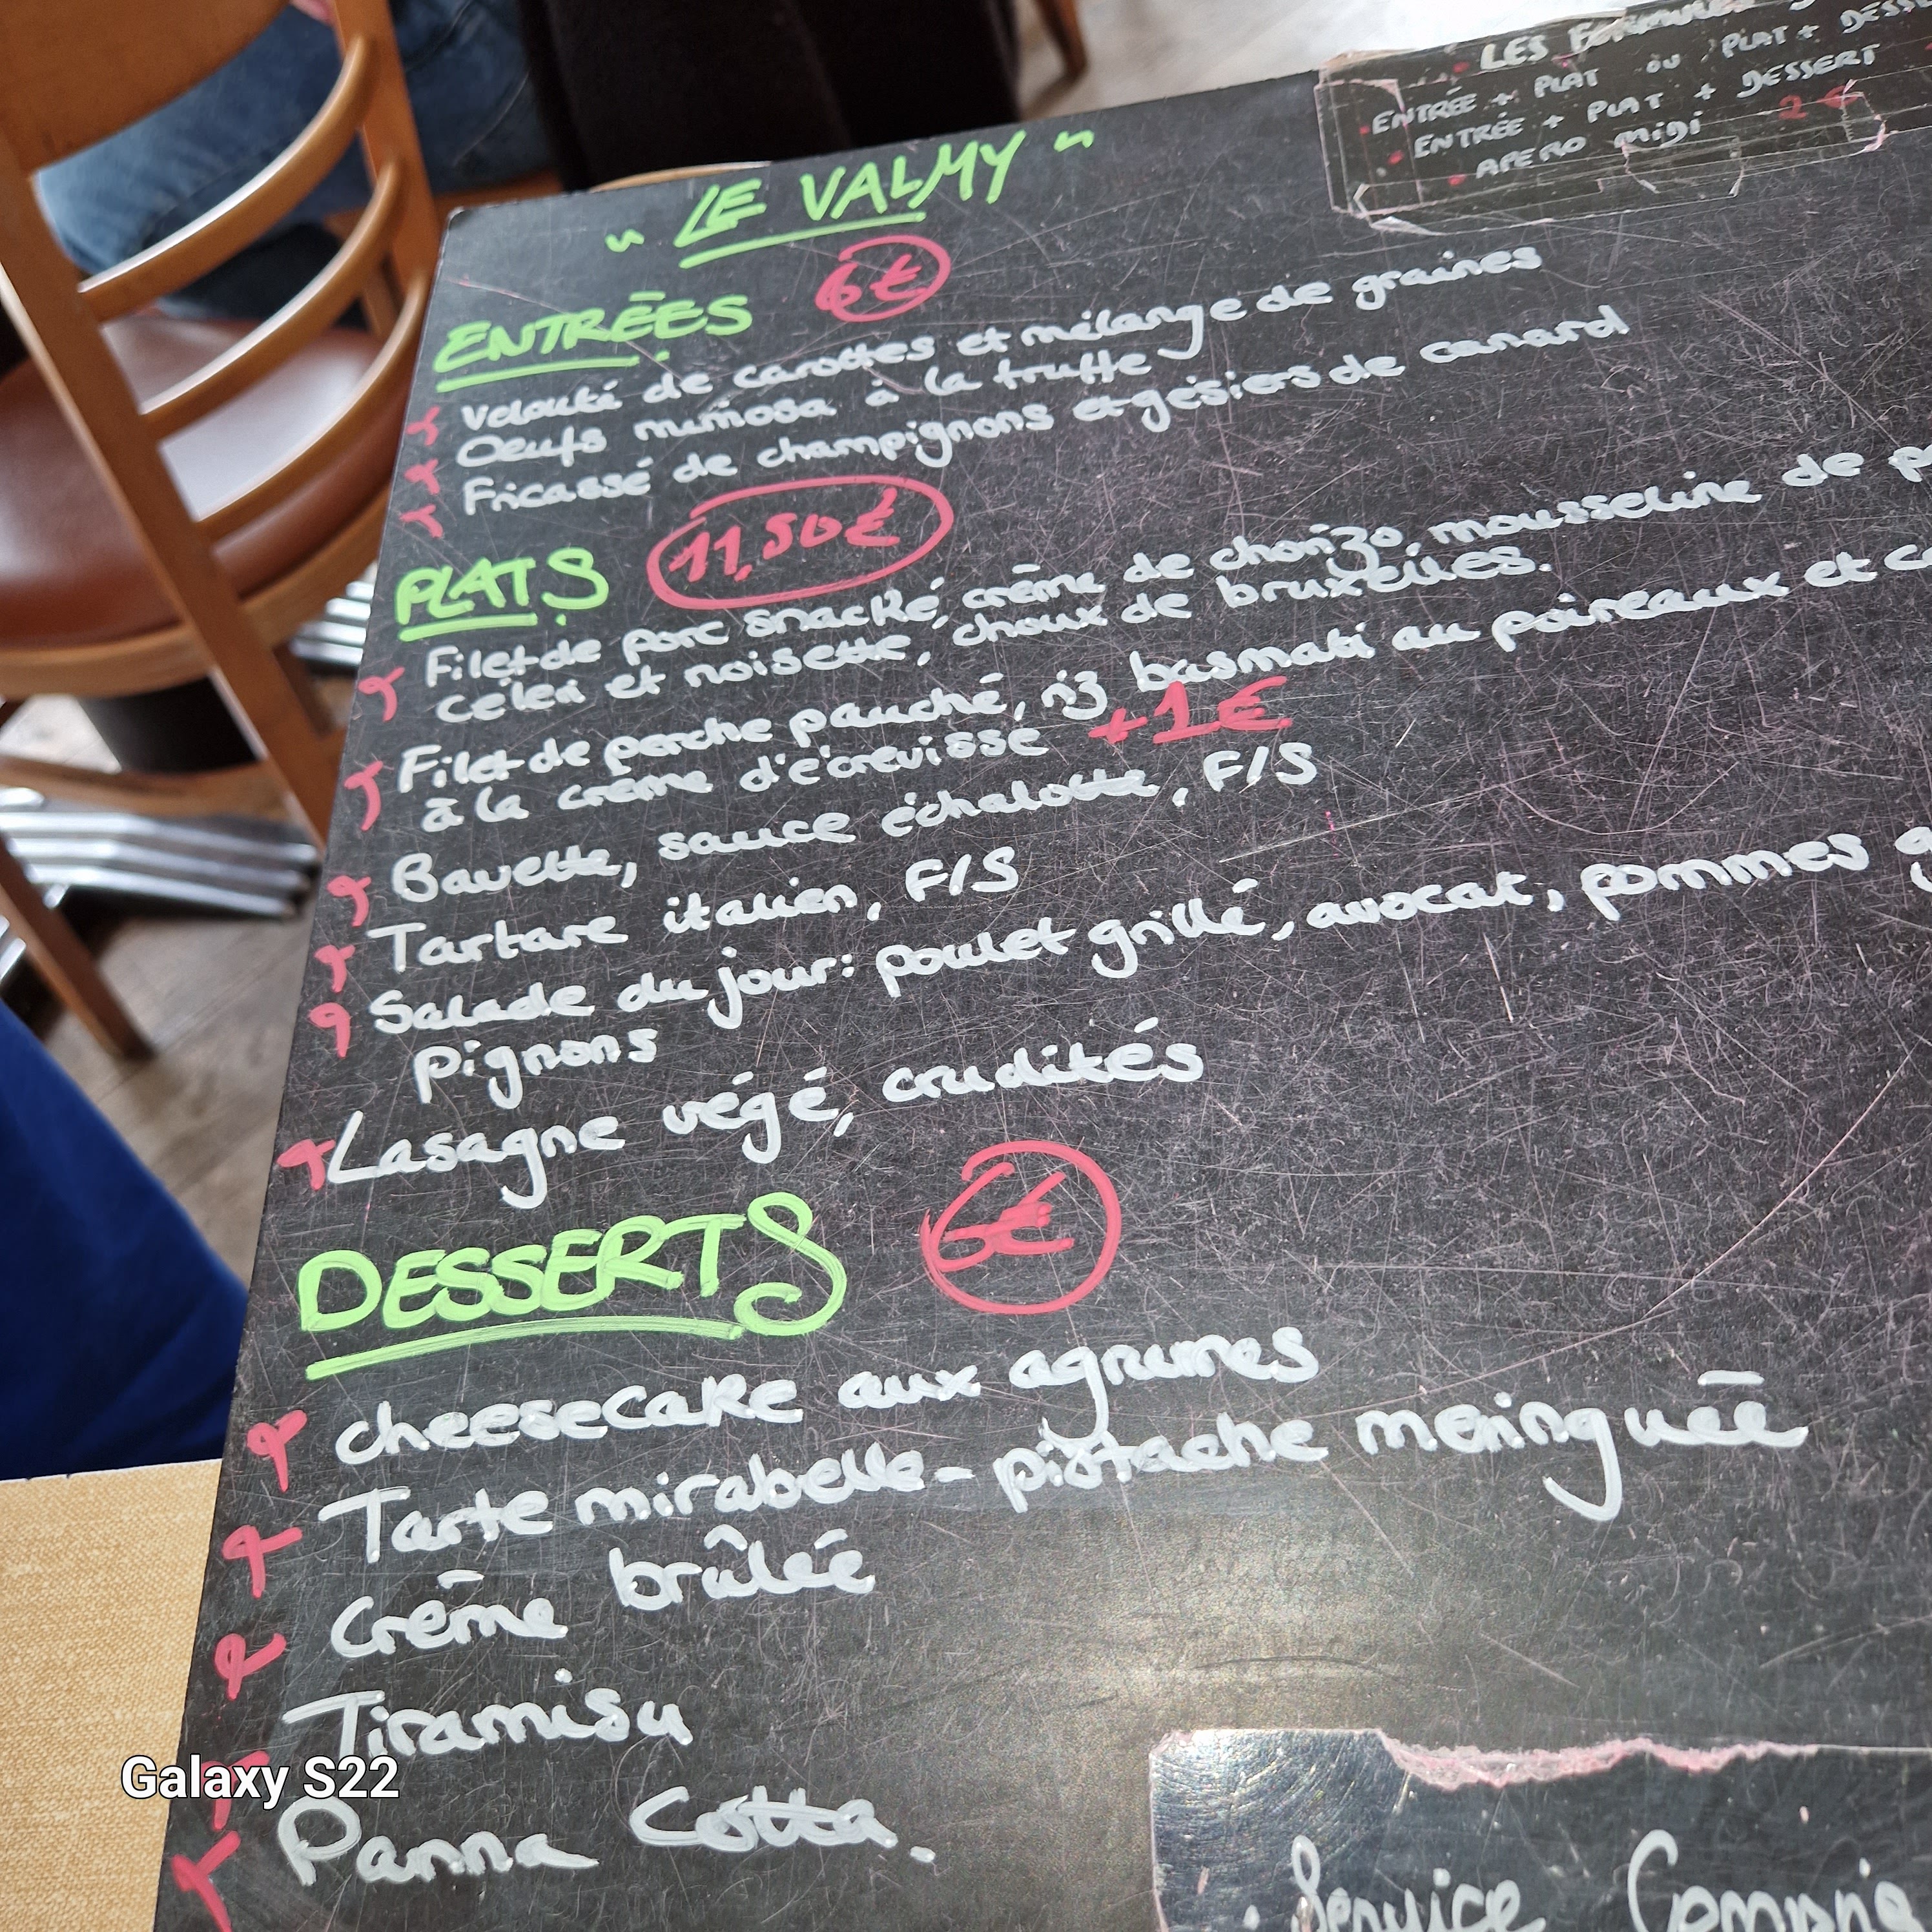 LES FORMULES
ENTRÉE + PLAT OU PLAT + DESSE
ENTRÉE + PLAT + DESSERT
APERO MIDI 2€
" LE VALMY "
ENTRÉES 6€
Velouté de carottes et mélange de graines
Oeufs mimosa à la truffe
Fricassé de champignons et gésiers de canard
PLATS 11,50€
Filet de porc snacké, crème de chorizo, mousseline de
celeri et noisette, choux de bruxelles.
Filet de perche pauché, riz basmati au poireaux et
à la crème d'écrevisse +1€
Bavette, sauce échalotte, F/S
Tartare italien, F/S
Salade du jour: poulet grillé, avocat, pommes
pignons
Lasagne végé, crudités
DESSERTS 6€
cheesecake aux agrumes
Tarte mirabelle-pistache meringuée
crème brûlée
Tiramisu
Panna Cotta.
Service Compris
Galaxy S22